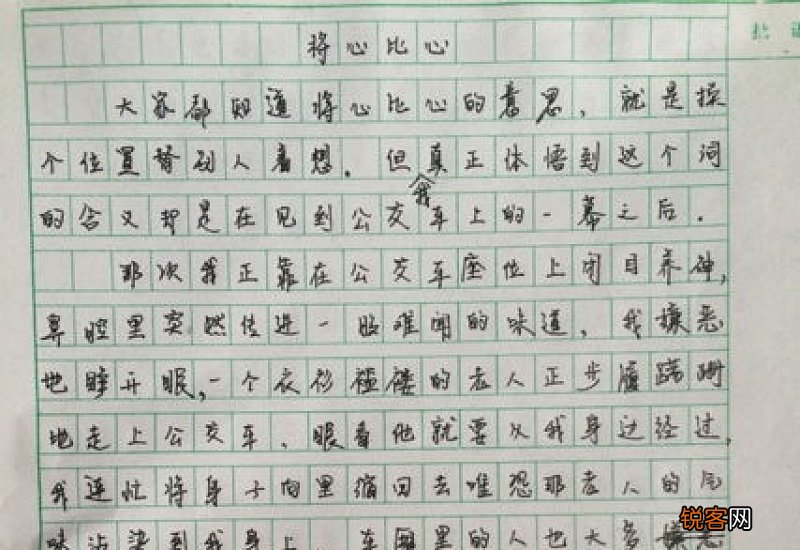 将心比心
大家都知道将心比心的意思，就是换
个位置替别人着想。但真正体悟到这个词
我
的含义却是在见到公交车上的一幕之后。
那次我正靠在公交车座位上闭目养神，
鼻腔里突然传进一股难闻的味道，我嫌恶
地睁开眼，一个衣衫褴褛的老人正步履蹒跚
地走上公交车、眼看他就要从我身边经过，
我连忙将身子向里缩回去唯恐那老人的气
味沾染到我身上。车里的人也大多嫌恶
锐客网